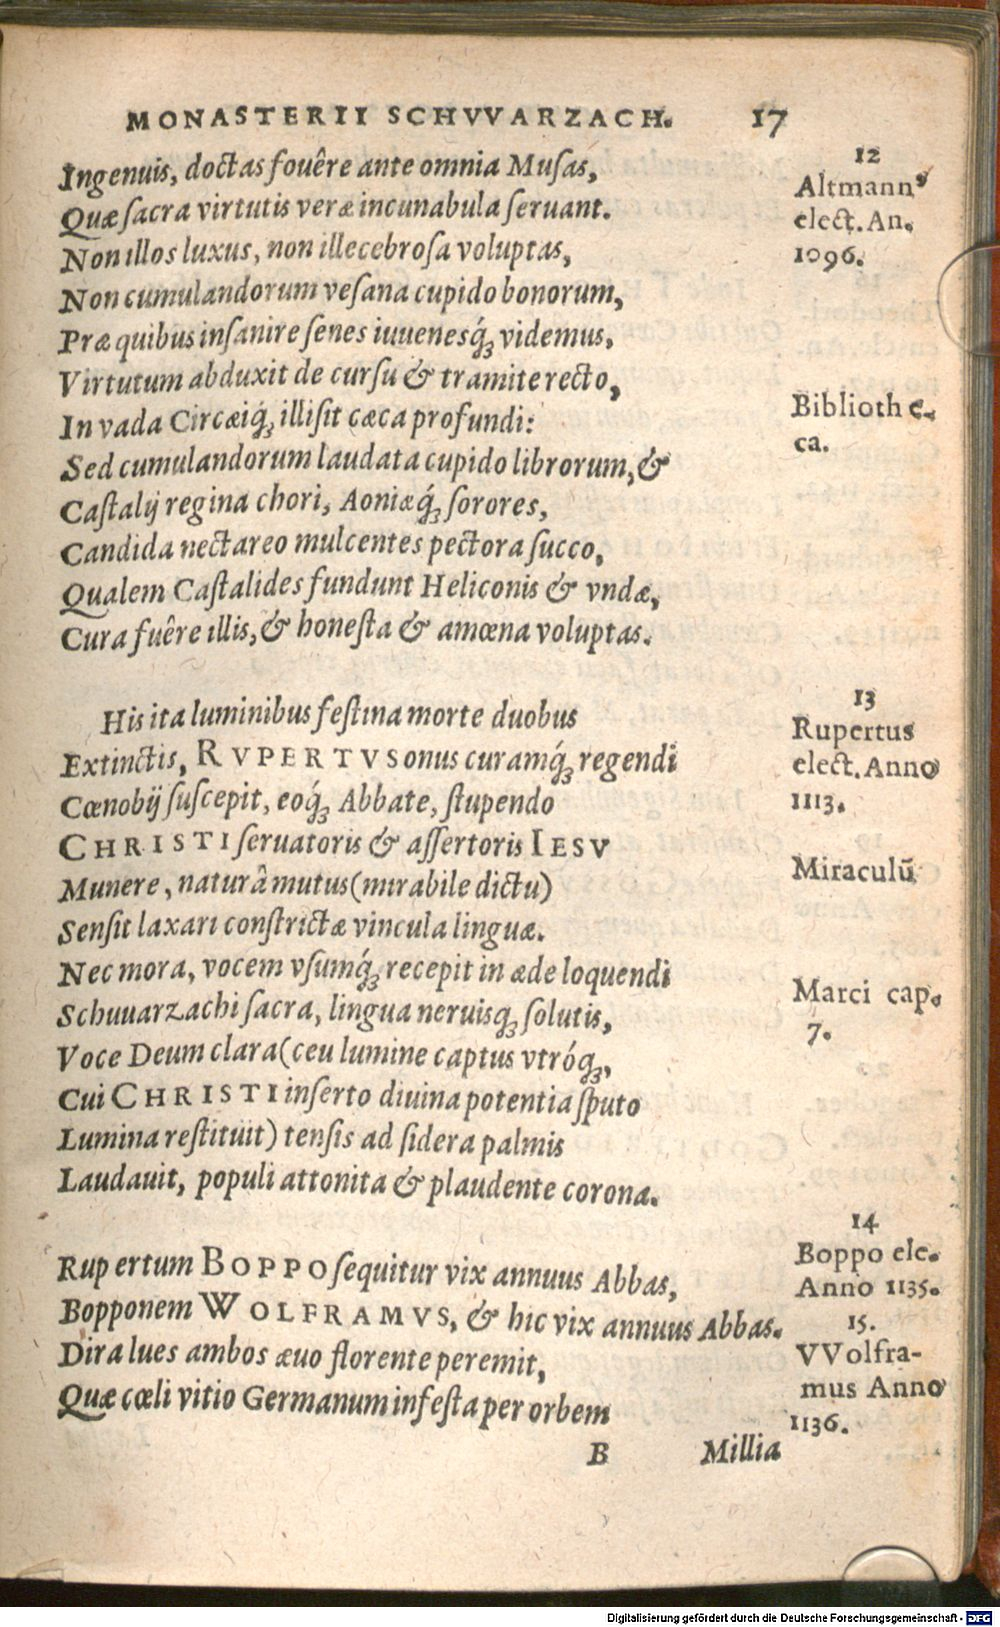 MONASTERII SCHVVARZACH. 17
Ingenuis, doctas fouêre ante omnia Musas,
Quæ sacra virtutis veræ incunabula seruant.
Non illos luxus, non illecebrosa voluptas,
Non cumulandorum vesana cupido bonorum,
Præ quibus insanire senes iuuenesq́; videmus,
Virtutum abduxit de cursu & tramite recto,
In vada Circæiq́; illisit cæca profundi:
Sed cumulandorum laudata cupido librorum, &
Castalij regina chori, Aoniæq́; sorores,
Candida nectareo mulcentes pectora succo,
Qualem Castalides fundunt Heliconis & vndæ,
Cura fuêre illis, & honesta & amœna voluptas.
12
Altmannꝰ
elect. An.
1096.
Biblioth e-
ca.
His ita luminibus festina morte duobus
Extinctis, RVPERTVS onus curamq́; regendi
Cœnobij suscepit, eoq́; Abbate, stupendo
CHRISTI seruatoris & assertoris IESV
Munere, naturâ mutus (mirabile dictu)
Sensit laxari constrictæ vincula linguæ.
Nec mora, vocem vsumq́; recepit in æde loquendi
Schuuarzachi sacra, lingua neruisq; solutis,
Voce Deum clara (ceu lumine captus vtróq;,
Cui CHRISTI inserto diuina potentia sputo
Lumina restituit) tensis ad sidera palmis
Laudauit, populi attonita & plaudente corona.
13
Rupertus
elect. Anno
1113.
Miraculū
Marci cap.
7.
Rupertum BOPPO sequitur vix annuus Abbas,
Bopponem WOLFRAMVS, & hic vix annuus Abbas.
Dira lues ambos æuo florente peremit,
Quæ cœli vitio Germanum infesta per orbem
14
Boppo ele.
Anno 1135.
15.
VVolfra-
mus Anno
1136.
B Millia
Digitalisierung gefördert durch die Deutsche Forschungsgemeinschaft - DFG